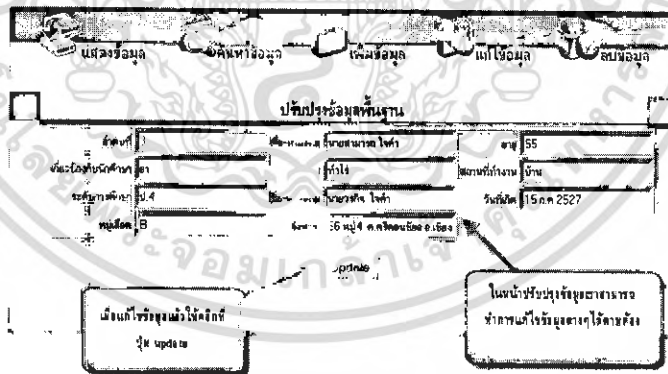 แสดงข้อมูล ค้นหาข้อมูล เพิ่มข้อมูล แก้ไขข้อมูล ลบข้อมูล
ปรับปรุงข้อมูลพื้นฐาน
ลำดับที่ นายสามารถ ใจคำ อายุ 55
เกี่ยวข้องกับนักศึกษา ทำไร่ สถานที่ทำงาน บ้าน
ระดับการศึกษา ป.4 ใจคำ วันที่เกิด 15 ก.ค 2527
หมู่เลือด B หมู่ 4
update
เมื่อแก้ไขข้อมูลแล้วให้คลิกที่
ปุ่ม update
ในหน้าปรับปรุงข้อมูลเราสามารถ
ทำการแก้ไขข้อมูลต่างๆได้ตามต้อง